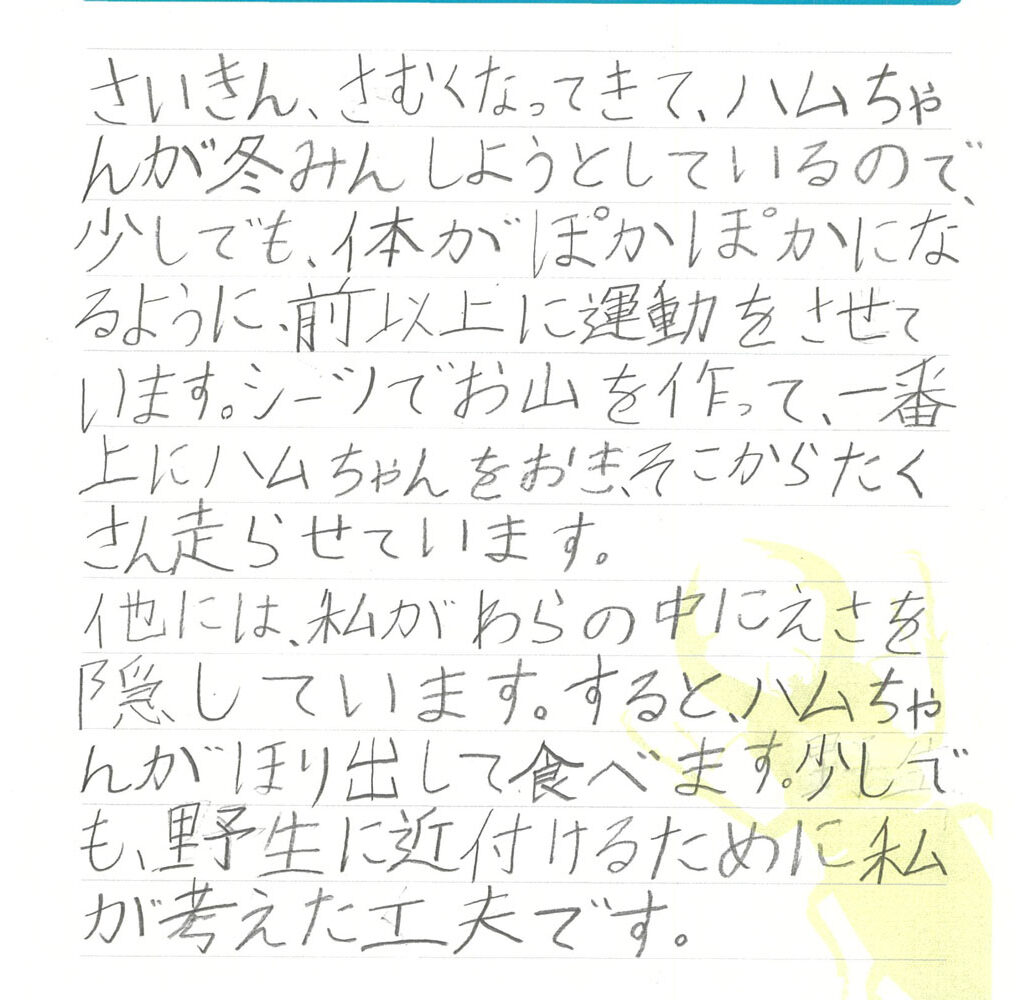 さいきん、さむくなってきて、ハムちゃ
んが冬みんしようとしているので、
少しでも、体がぽかぽかにな
るように、前以上に運動をさせて
います。シーツでお山を作って、一番
上にハムちゃんをおき、そこからたく
さん走らせています。
他には、私がわらの中にえさを
隠しています。すると、ハムちゃ
んがほり出して食べます。少しで
も、野生に近付けるために私
が考えた工夫です。